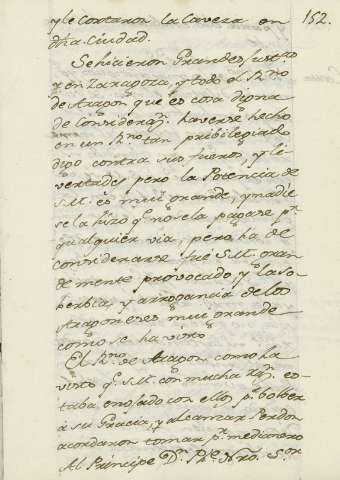 152.
y le cortaron la Caveza en
dha Ciudad.
Se hicieron Grandes Justas
en Zaragoza, y todo el Rno
de Aragon, que es cosa digna
de Considerazn haverse hecho
en un Rno tan pribilegiado
digo contra sus fueros, y li
vertades pero la Potencia de
S.M. es mui grande, y nadie
se la hizo q no se la pagase pr
qualquier via, pero ha de
considerarse fue S.M. gran
demente probocado y q la so
berbia, y arrogancia de los
Aragoneses mui grande
como se ha visto
El Rno de Aragon como ha
visto q S.M. con mucha Razn es
taba enojado con ellos pa bolber
à su Gracia, y alcanzar Perdon
acordaron tomar pr medianero
Al Principe Dn Phe Nro. Sor